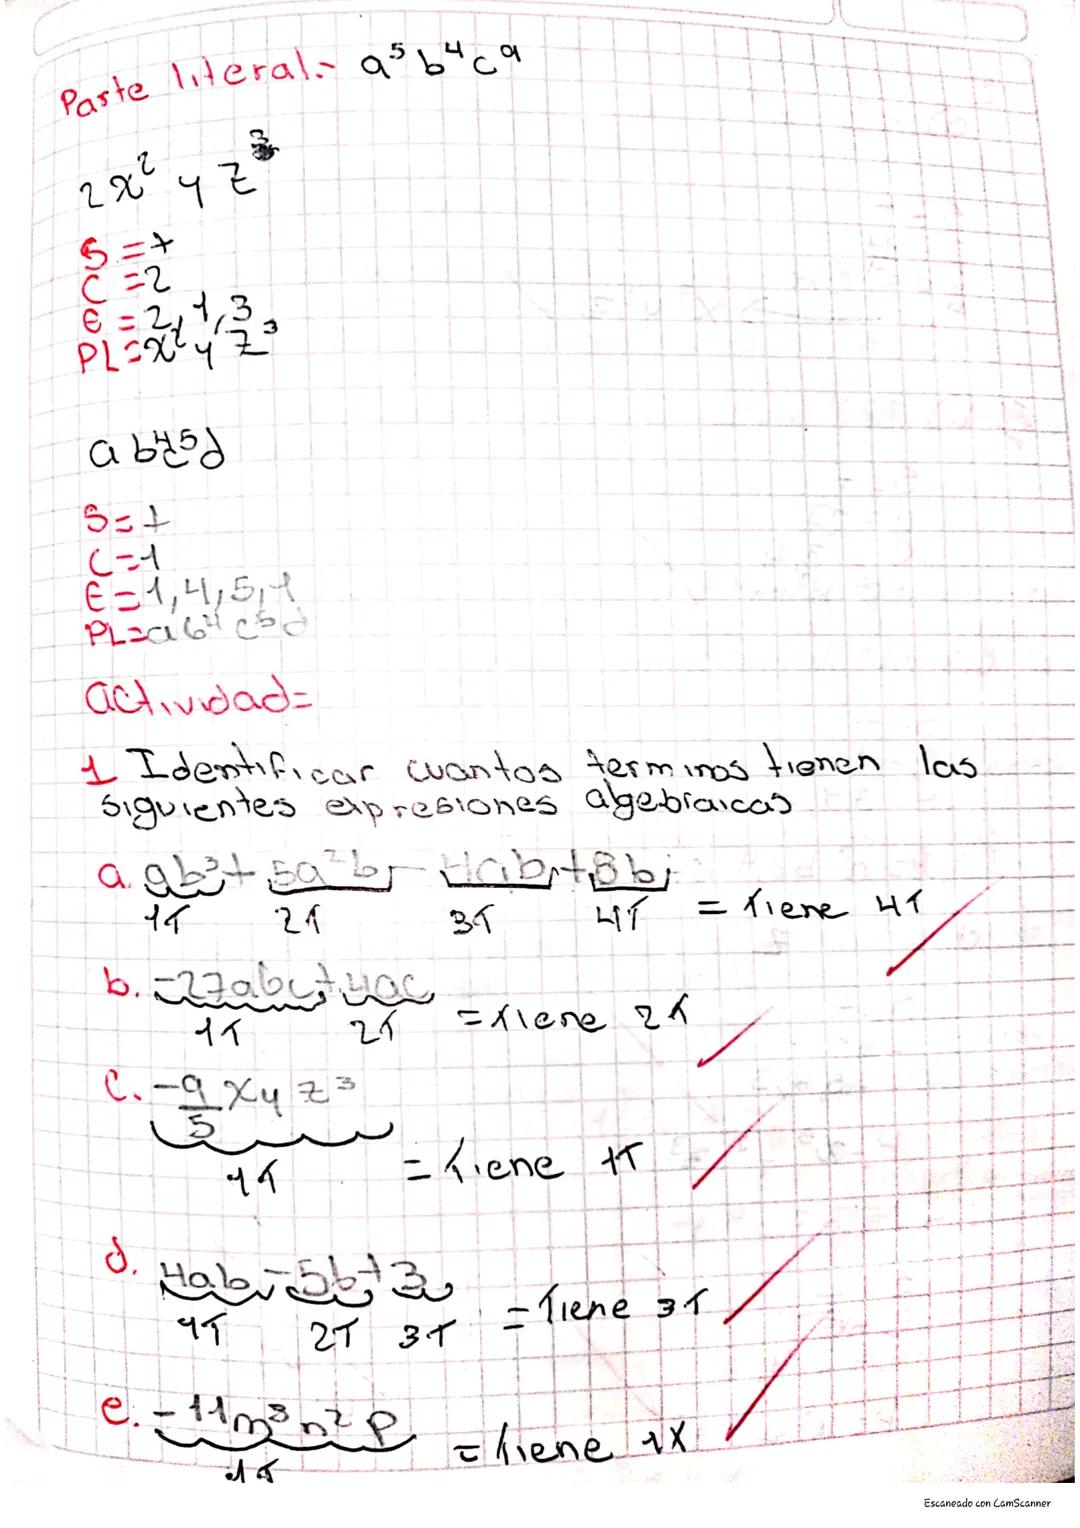 Parte literal.- a⁵ b⁴ c⁹
2x² y z³
S = +
C = 2
E = 2, 1, 3
PL = x² y z³
a b⁴c⁵d
S = +
C = 1
E = 1, 4, 5, 1
PL = a b⁴ c⁵ d
actividad=
1 Identificar cuantos terminos tienen las
siguientes expresiones algebraicas
a. 9b³ + 5a²b - 4ab + 8b
1T 2T 3T 4T = Tiene 4T
b. -27abc + 4ac
1T 2T = Tiene 2T
c. -9/5 xy z³
1T = Tiene 1T
d. 4ab - 5b + 3
1T 2T 3T = Tiene 3T
e. -11m³n² p
1T = Tiene 1X
Escaneado con CamScanner